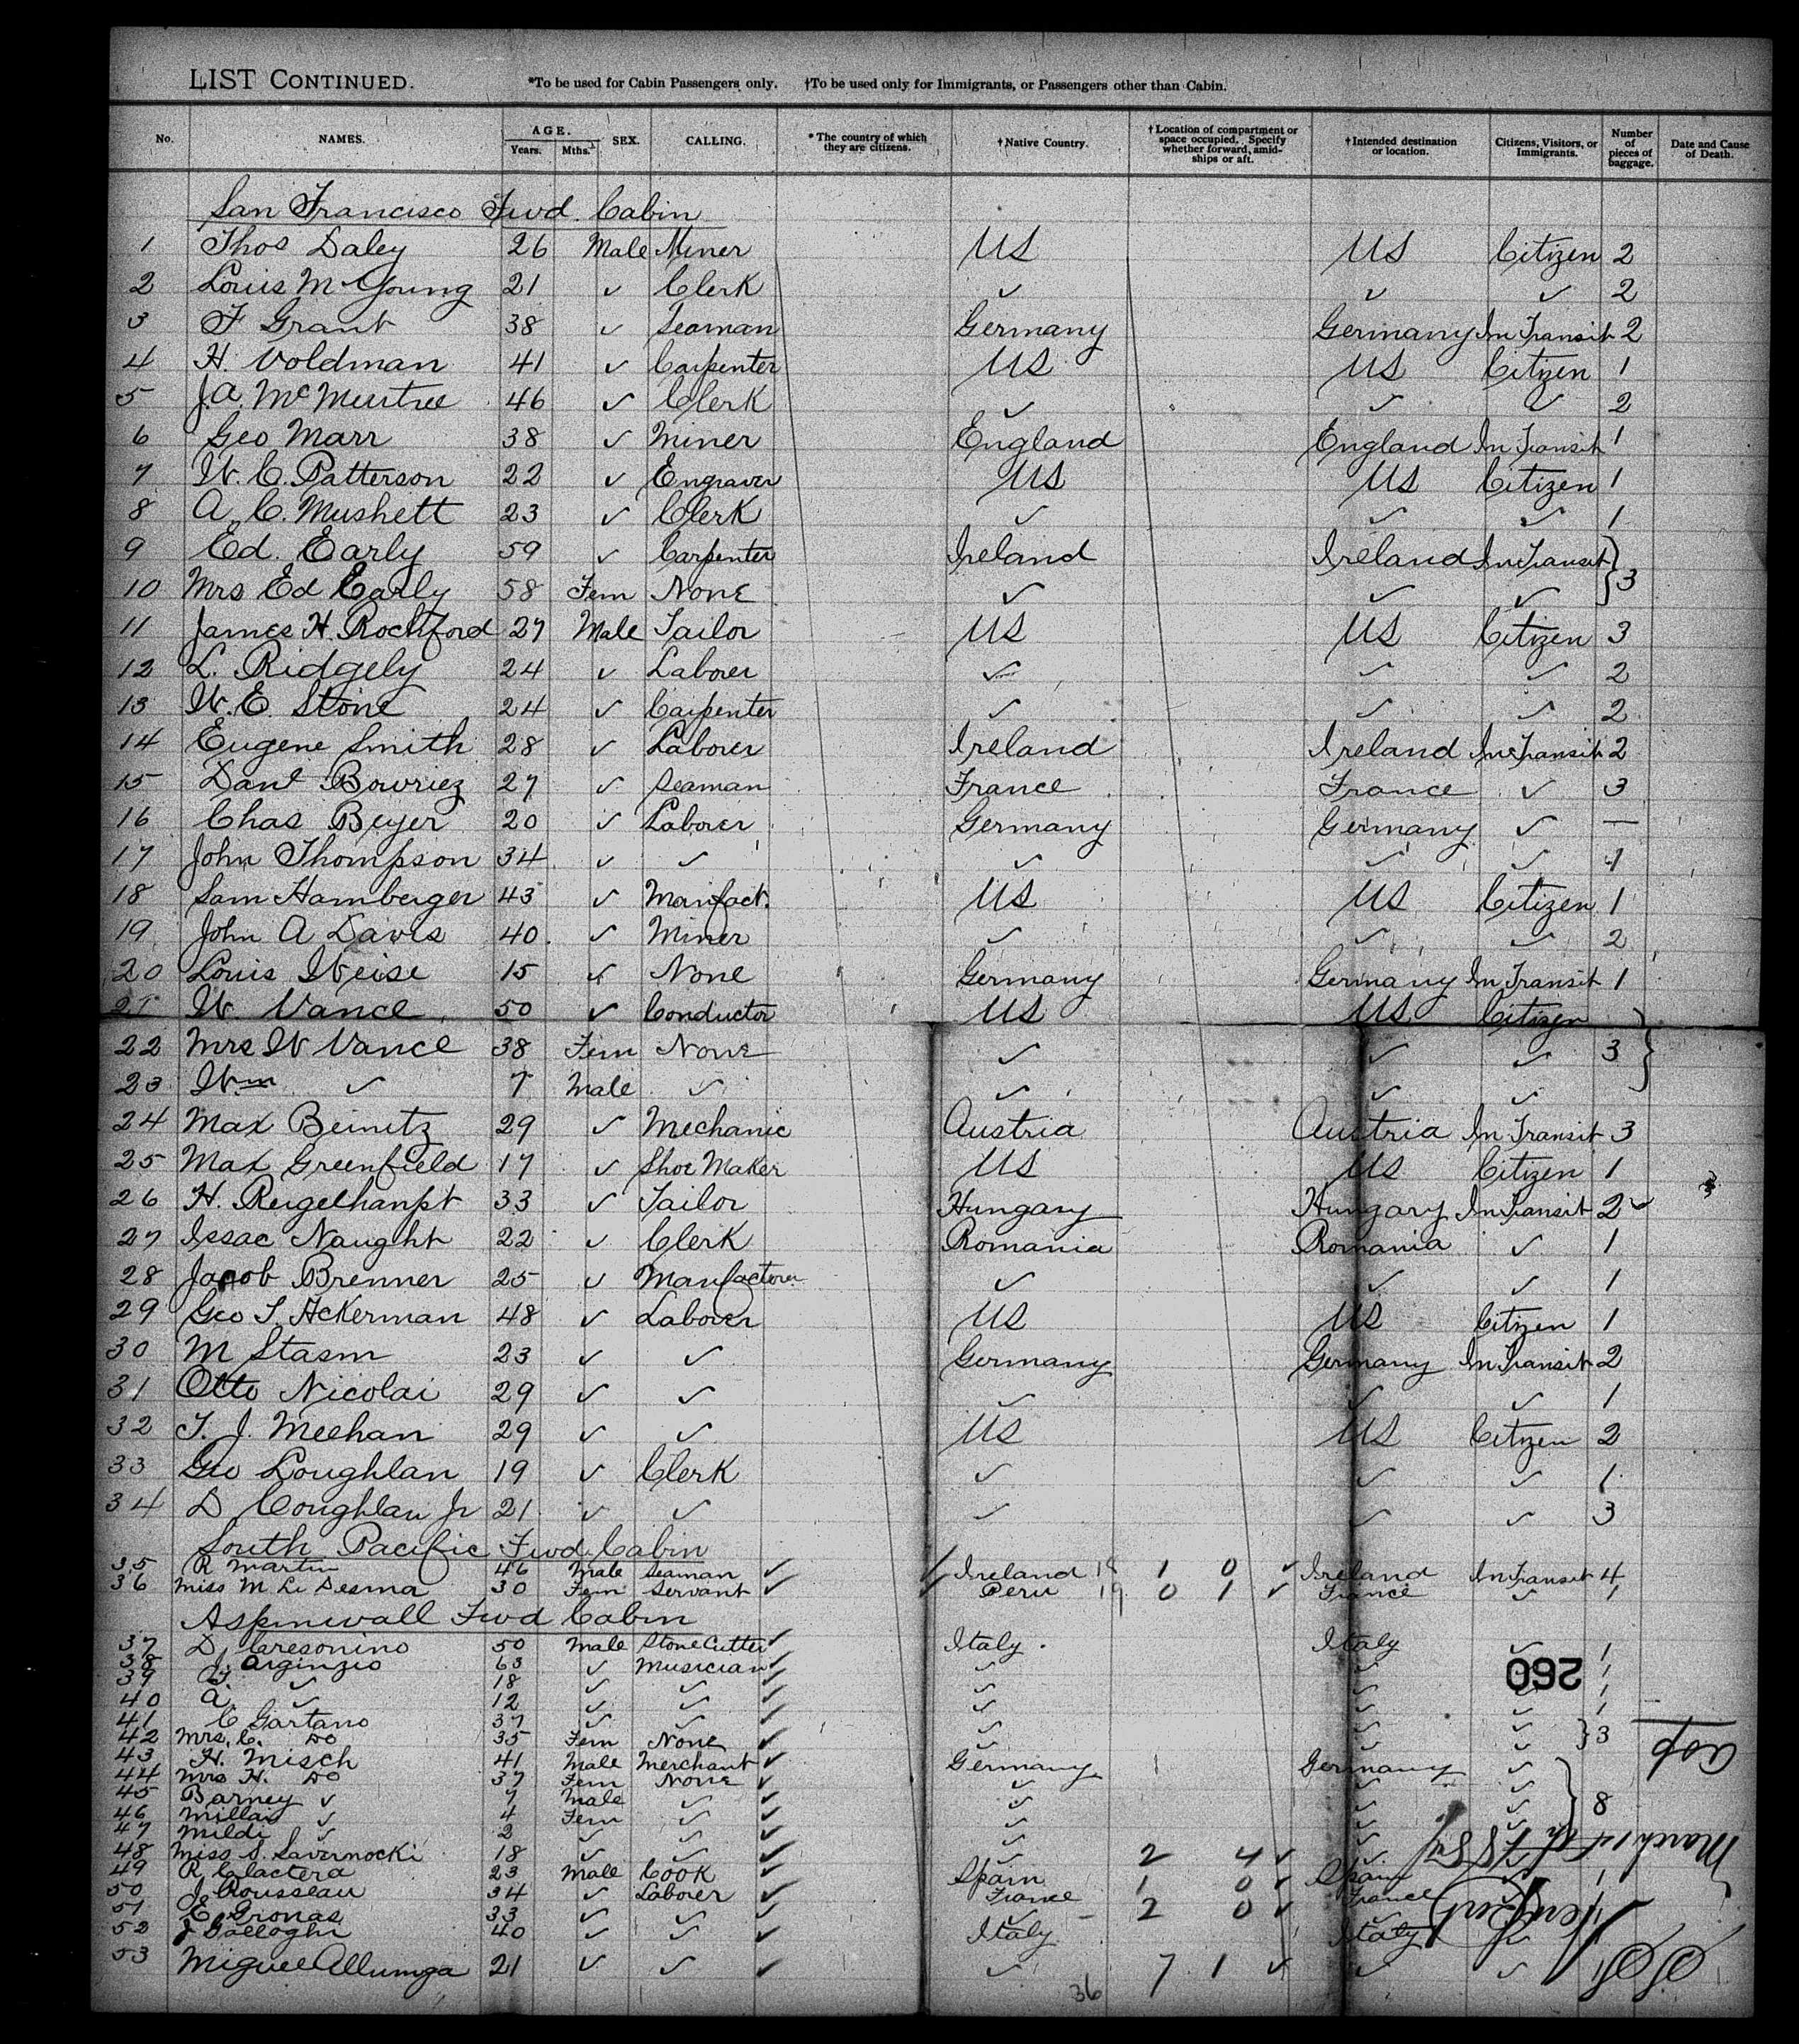 LIST CONTINUED. *To be used for Cabin Passengers only. †To be used only for Immigrants, or Passengers other than Cabin.
No. NAMES. AGE. Years. Mths. SEX. CALLING. *The country of which they are citizens. †Native Country. †Location of compartment or space occupied. Specify whether forward, amidships or aft. †Intended destination or location. Citizens, Visitors, or Immigrants. Number of pieces of baggage. Date and Cause of Death.
San Francisco Fwd. Cabin
1 Thos Daley 26 Male Miner US US Citizen 2
2 Louis M Young 21 ✓ Clerk ✓ ✓ ✓ 2
3 F Grant 38 ✓ Seaman Germany Germany In Transit 2
4 H. Voldman 41 ✓ Carpenter US US Citizen 1
5 J.A. McMurtree 46 ✓ Clerk ✓ ✓ ✓ 2
6 Geo Marr 38 ✓ Miner England England In Transit 1
7 W. C. Patterson 22 ✓ Engraver US US Citizen 1
8 A. C. Mushett 23 ✓ Clerk ✓ ✓ ✓ 1
9 Ed. Early 59 ✓ Carpenter Ireland Ireland In Transit
10 Mrs Ed Early 58 Fem None ✓ ✓ ✓ } 3
11 James H. Rochford 27 Male Tailor US US Citizen 3
12 L. Ridgely 24 ✓ Laborer ✓ ✓ ✓ 2
13 W. E. Stone 24 ✓ Carpenter ✓ ✓ ✓ 2
14 Eugene Smith 28 ✓ Laborer Ireland Ireland In Transit 2
15 Danl Bowriez 27 ✓ Seaman France France ✓ 3
16 Chas Beyer 20 ✓ Laborer Germany Germany ✓ —
17 John Thompson 34 ✓ ✓ ✓ ✓ ✓ 1
18 Sam Hamberger 43 ✓ Manfact. US US Citizen 1
19 John A Davis 40 ✓ Miner ✓ ✓ ✓ 2
20 Louis Weise 15 ✓ None Germany Germany In Transit 1
21 W. Vance 50 ✓ Conductor US US Citizen
22 Mrs W Vance 38 Fem None ✓ ✓ ✓ 3 }
23 Wm ✓ 7 Male ✓ ✓ ✓ ✓
24 Max Beinitz 29 ✓ Mechanic Austria Austria In Transit 3
25 Max Greenfield 17 ✓ Shoe Maker US US Citizen 1
26 H. Reigelhanpt 33 ✓ Tailor Hungary Hungary In Transit 2 ✓
27 Issac Naught 22 ✓ Clerk Romania Romania ✓ 1
28 Jacob Brenner 25 ✓ Manfacterer ✓ ✓ ✓ 1
29 Geo T. Ackerman 48 ✓ Laborer US US Citizen 1
30 M Stasm 23 ✓ ✓ Germany Germany In Transit 2
31 Otto Nicolai 29 ✓ ✓ ✓ ✓ ✓ 1
32 T. J. Meehan 29 ✓ ✓ US US Citizen 2
33 Geo Loughlan 19 ✓ Clerk ✓ ✓ ✓ 1
34 D Coughlan Jr 21 ✓ ✓ ✓ ✓ ✓ 3
South Pacific Fwd Cabin
35 R Martin 46 Male Seaman ✓ ✓ Ireland 18 1 0 ✓ Ireland In Transit 4
36 Miss M. Le Desma 30 Fem Servant ✓ ✓ Peru 19 0 1 ✓ France ✓ 1
Aspinwall Fwd Cabin
37 D. Cresonino 50 Male Stone Cutter ✓ Italy Italy ✓ 1
38 J. Arginzio 63 ✓ Musician ✓ ✓ ✓ ✓ 1
39 ✓ 18 ✓ ✓ ✓ ✓ ✓ ✓ 1
40 A. ✓ 12 ✓ ✓ ✓ ✓ ✓ ✓ 1
41 C Gartano 37 ✓ ✓ ✓ ✓ ✓ ✓
42 Mrs. C. Do 35 Fem None ✓ ✓ ✓ ✓ } 3
43 H. Misch 41 Male Merchant ✓ Germany Germany ✓
44 Mrs H. Do 37 Fem None ✓ ✓ ✓ ✓
45 Barney ✓ 7 Male ✓ ✓ ✓ ✓ ✓ } 8
46 Millai ✓ 4 Fem ✓ ✓ ✓ ✓ ✓
47 Mildi ✓ 2 ✓ ✓ ✓ ✓ ✓
48 Miss S. Savernocki 18 ✓ ✓ ✓ ✓ 2 4 ✓ ✓
49 R Calactera 23 Male Cook ✓ Spain 1 0 ✓ Spain ✓ 1
50 J. Rousseau 34 ✓ Laborer ✓ France 2 0 ✓ France
51 E. Gronas 33 ✓ ✓ ✓ ✓ ✓
52 J Galloghi 40 ✓ ✓ ✓ Italy Italy
53 Miguel Allumga 21 ✓ ✓ ✓ ✓ 7 1 ✓ ✓ ✓
36
260
Asp
March 14th 1887